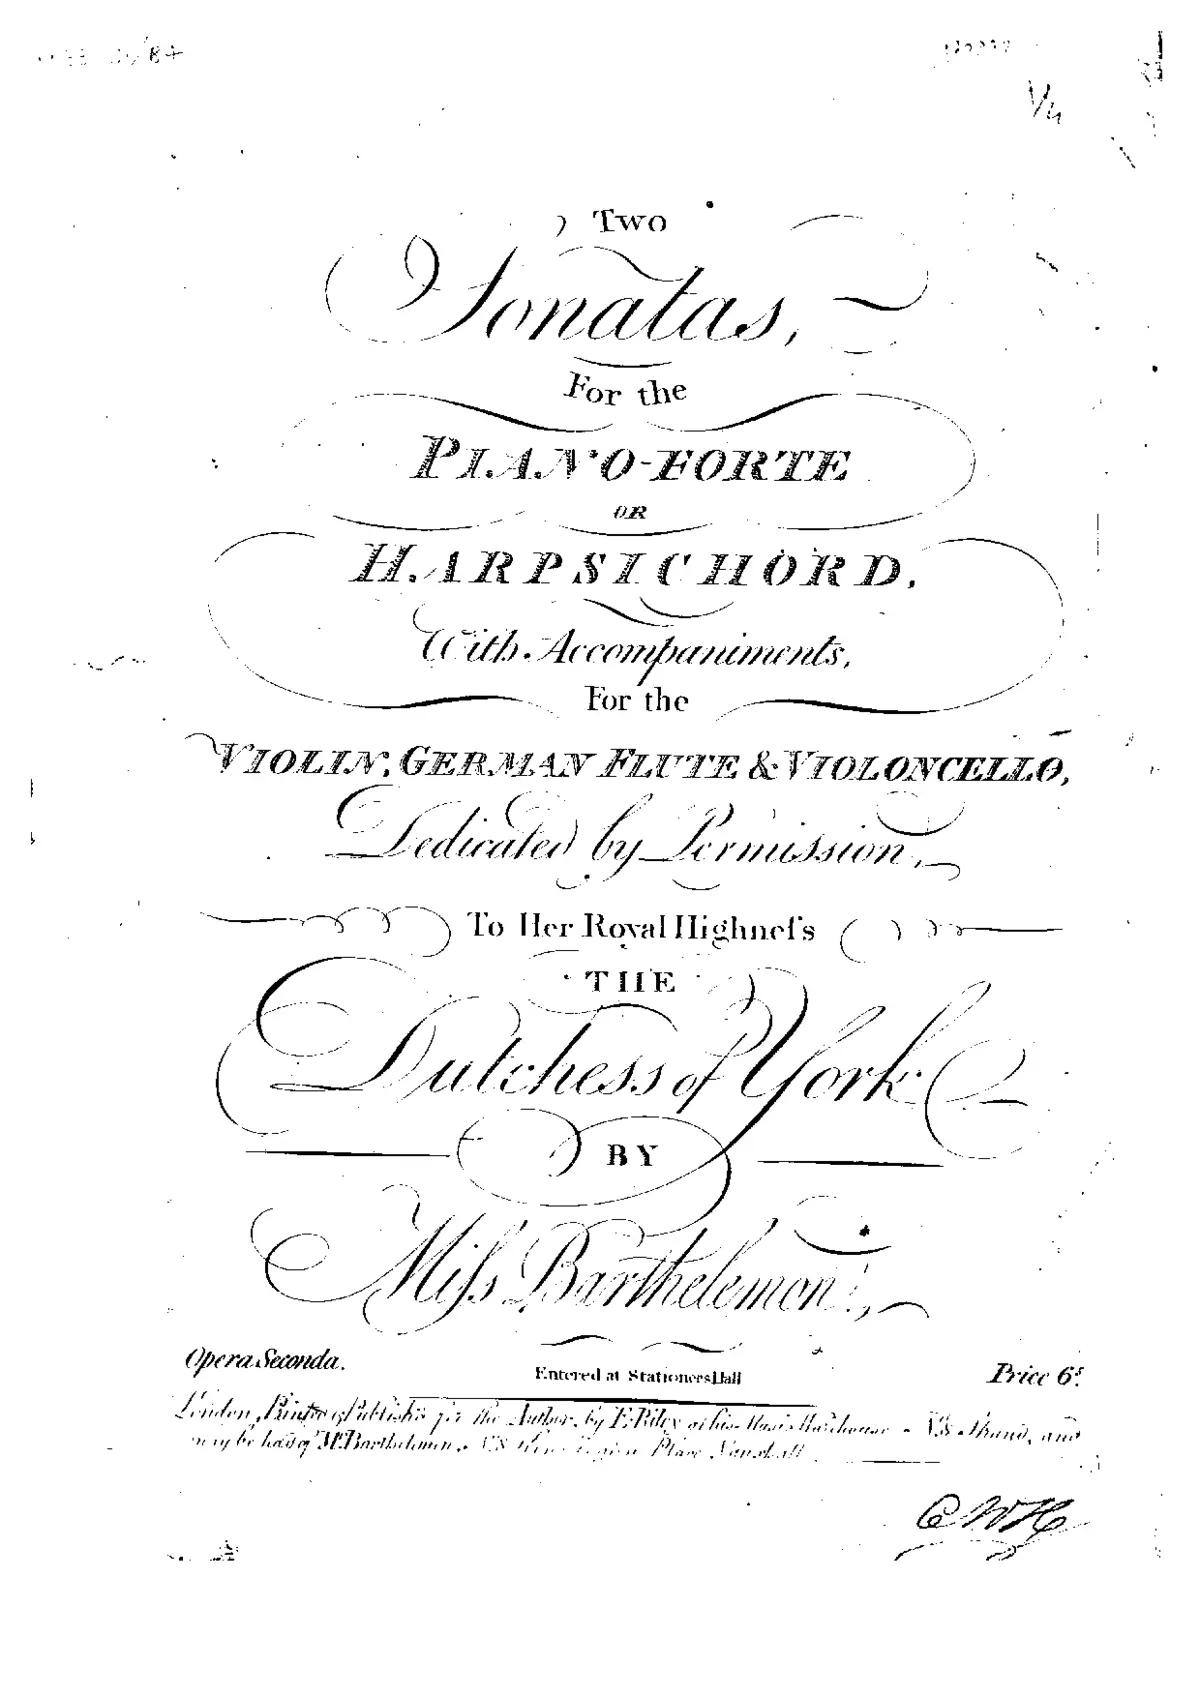 Two
Sonatas,
For the
PIANO-FORTE
OR
HARPSICHORD,
With Accompaniments,
For the
VIOLIN, GERMAN FLUTE & VIOLONCELLO,
Dedicated by Permission,
To Her Royal Highneſs
THE
Dutchess of York
BY
Miſs Barthelemon,
Opera Seconda.
Entered at Stationers Hall
Price 6s.
London, Printed & Publish'd for the Author, by E. Riley at his Music Warehouse No. 8 Strand, and
may be had of Mr. Barthelemon, No. 8 Place Vauxhall
CWH